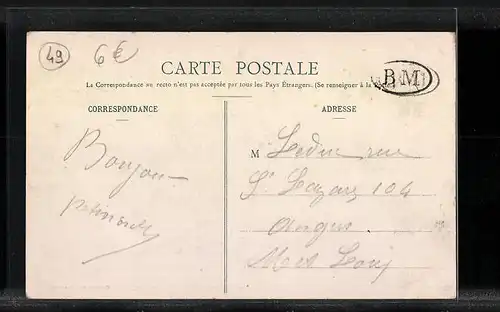 49
6€
CARTE POSTALE
La Correspondance au recto n'est pas acceptée par tous les Pays Étrangers. (Se renseigner à la Poste)
B M
CORRESPONDANCE
ADRESSE
M Leduc rue
St Lazare 104
Angers